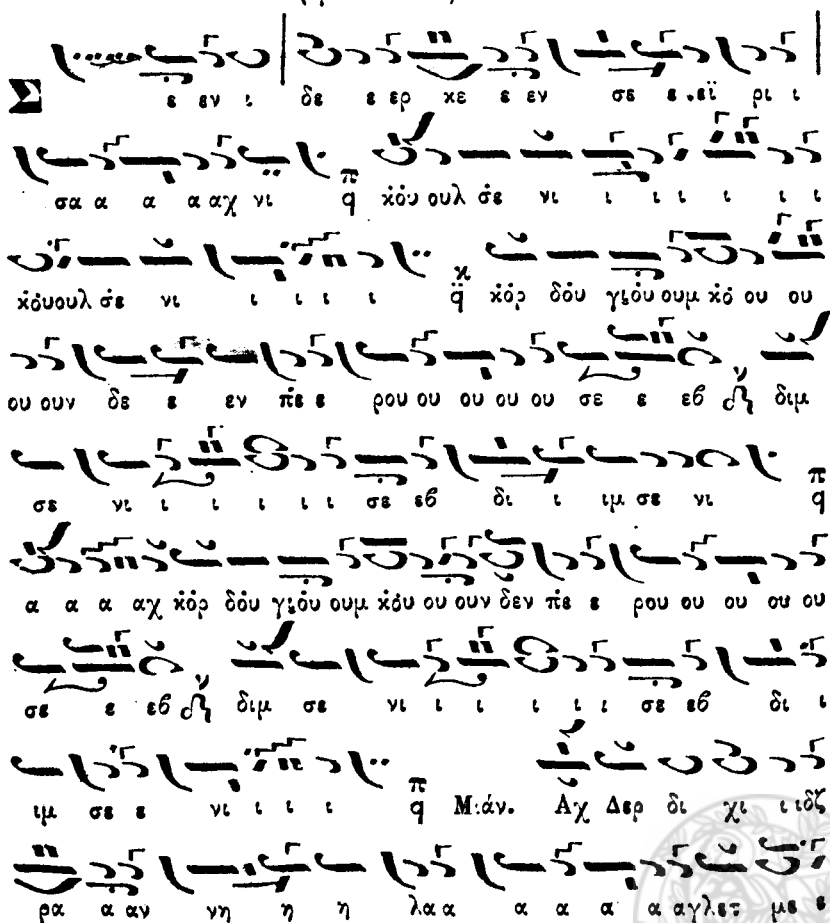 Σ ε εν ι δε ε ερ κε ε εν σε ε .εϊ ρι ι
σα α α α αχ νι π q κόυ ουλ σε νι ι ι ι ι ι ι
κόυουλ σε νι ι ι ι ι κ q κόρ δόυ γιόυ ουμ κό ου ου
ου ουν δε ε εν πε ε ρου ου ου ου ου σε ε εϐ ν διμ
σε νι ι ι ι ι ι σε εϐ δι ι ιμ σε νι π q
α α α αχ κόρ δόυ γιόυ ουμ κόυ ου ουν δεν πε ε ρου ου ου ου ου
σε ε εϐ ν διμ σε νι ι ι ι ι ι σε εϐ δι ι
ιμ σε ε νι ι ι ι π q Μιάν. Αχ Δερ δι χι ι ιδζ
ρα α αν νη η η λα α α α α α αγλετ με ε